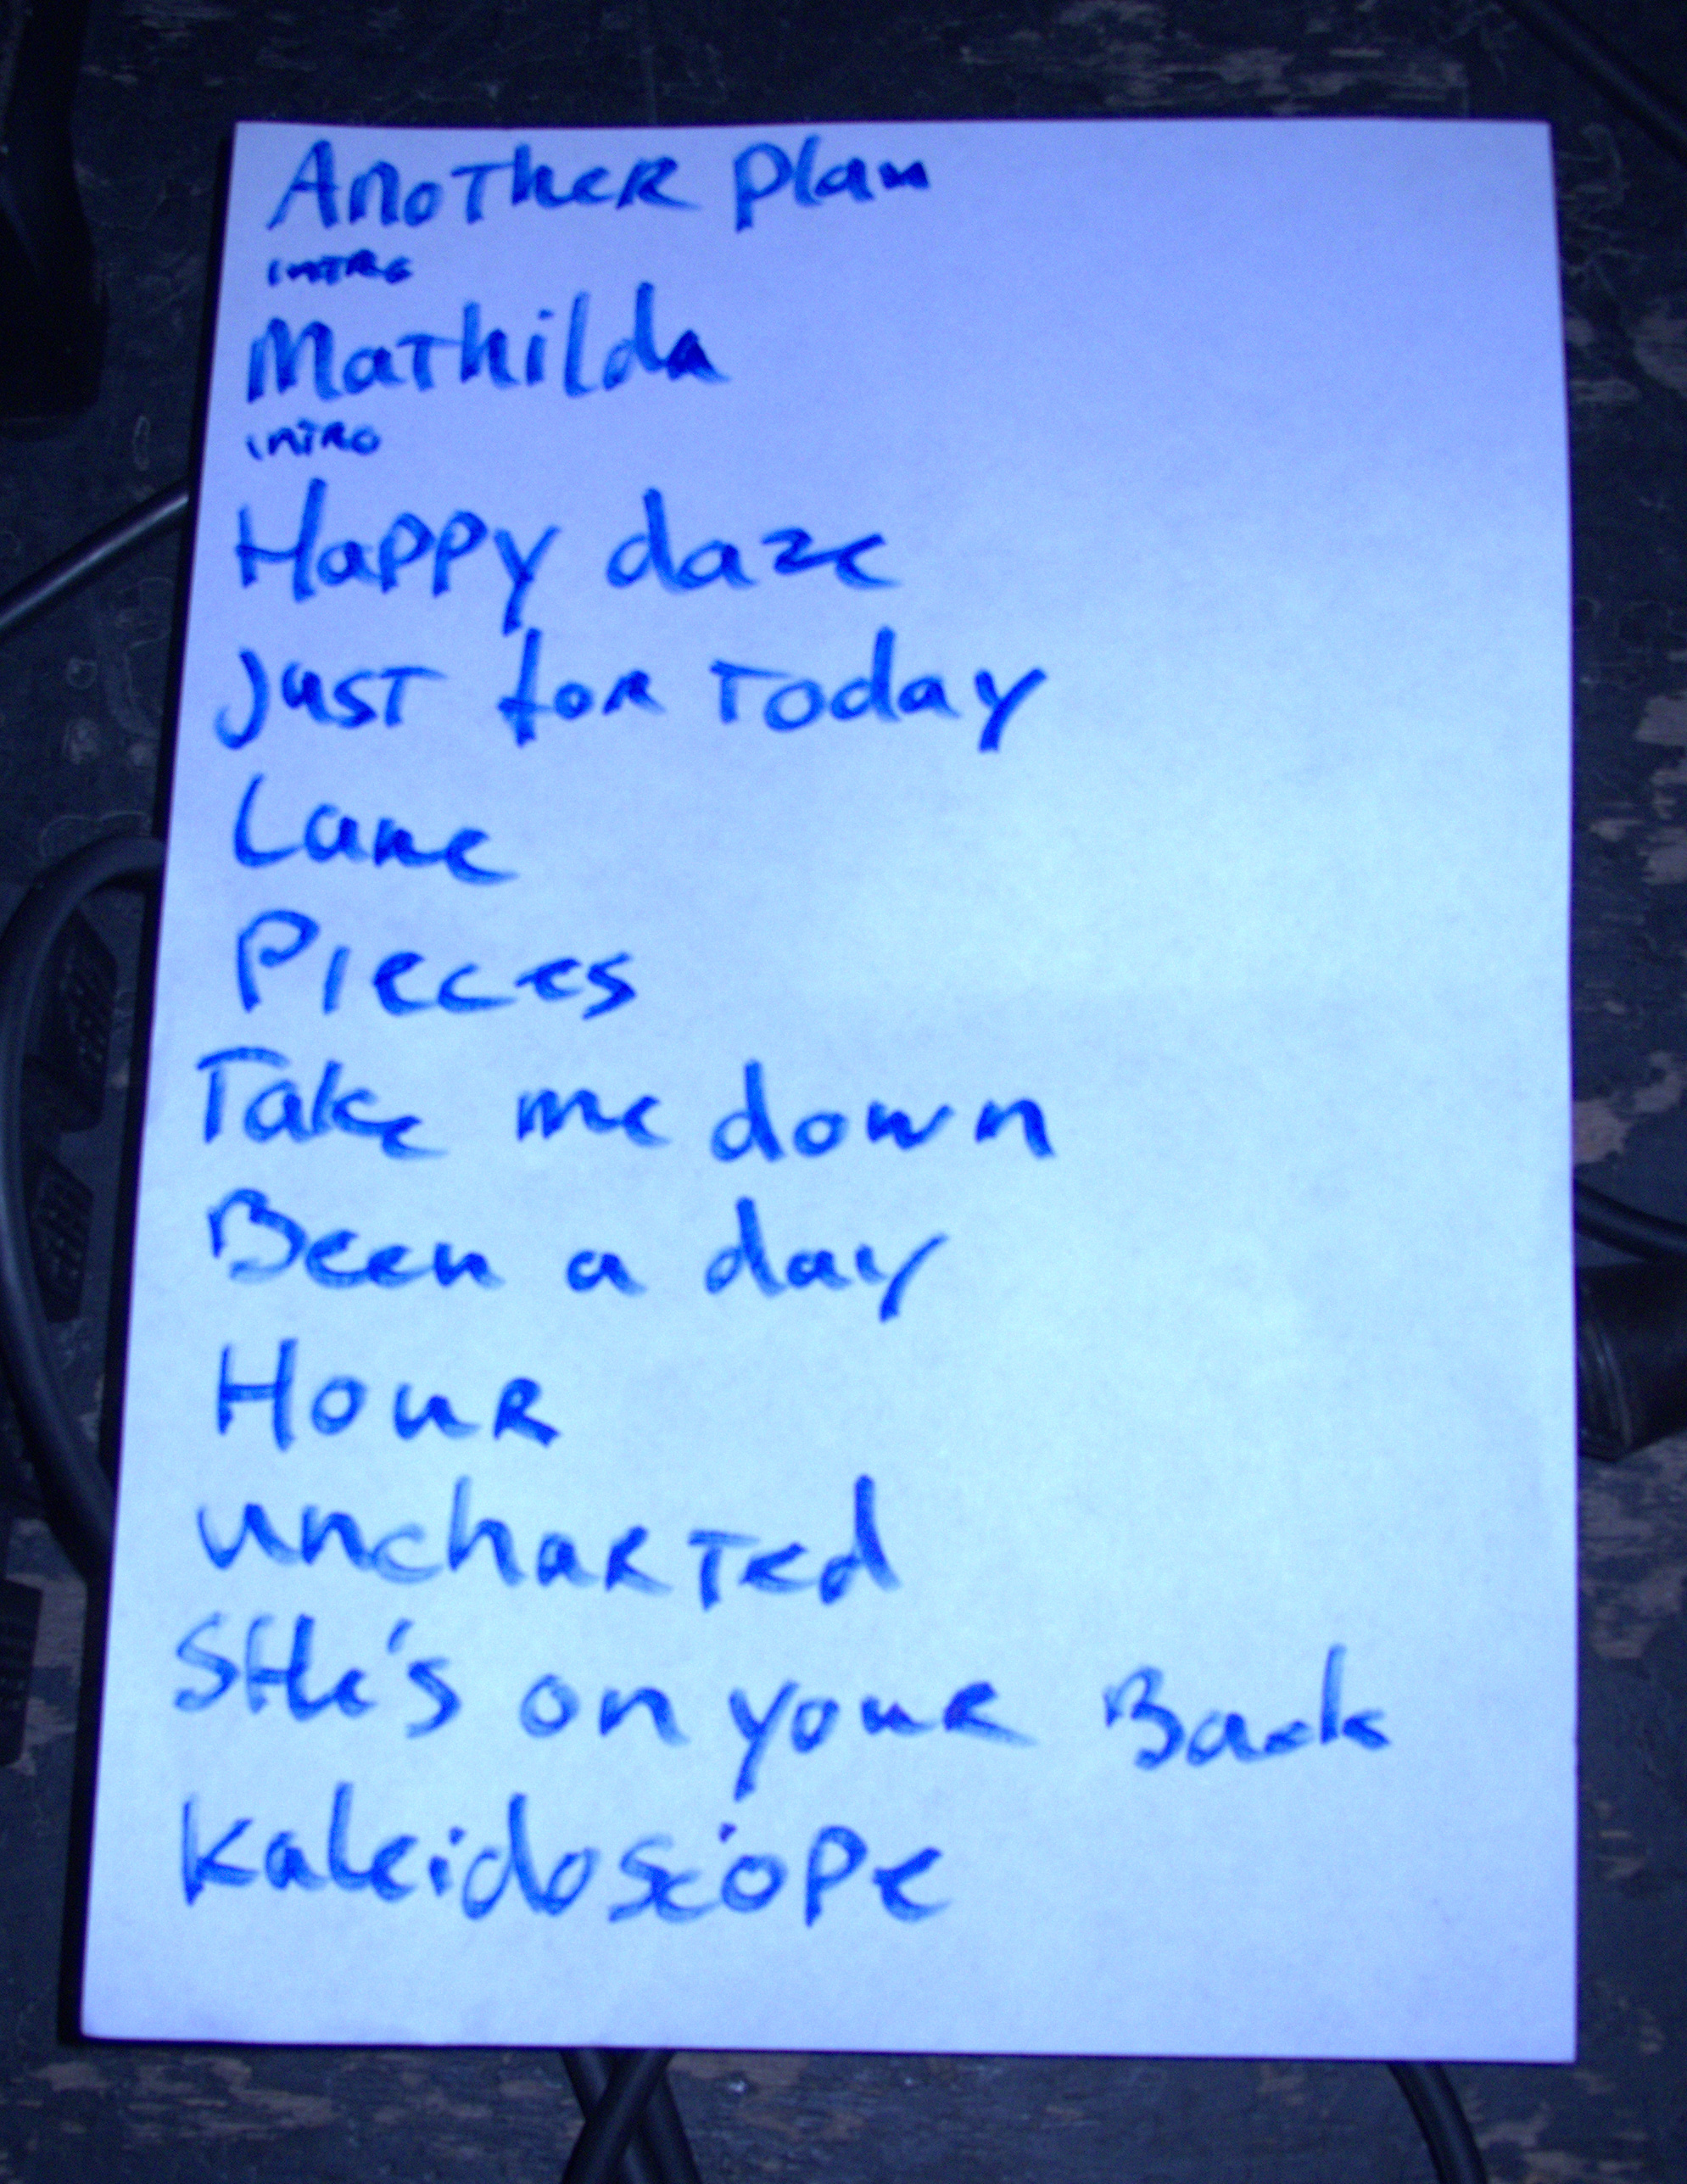 Another Plan
intro
Mathilda
intro
Happy daze
Just for Today
Lane
Pieces
Take me down
Been a day
Hour
uncharted
SHe's on your Back
Kaleidoscope